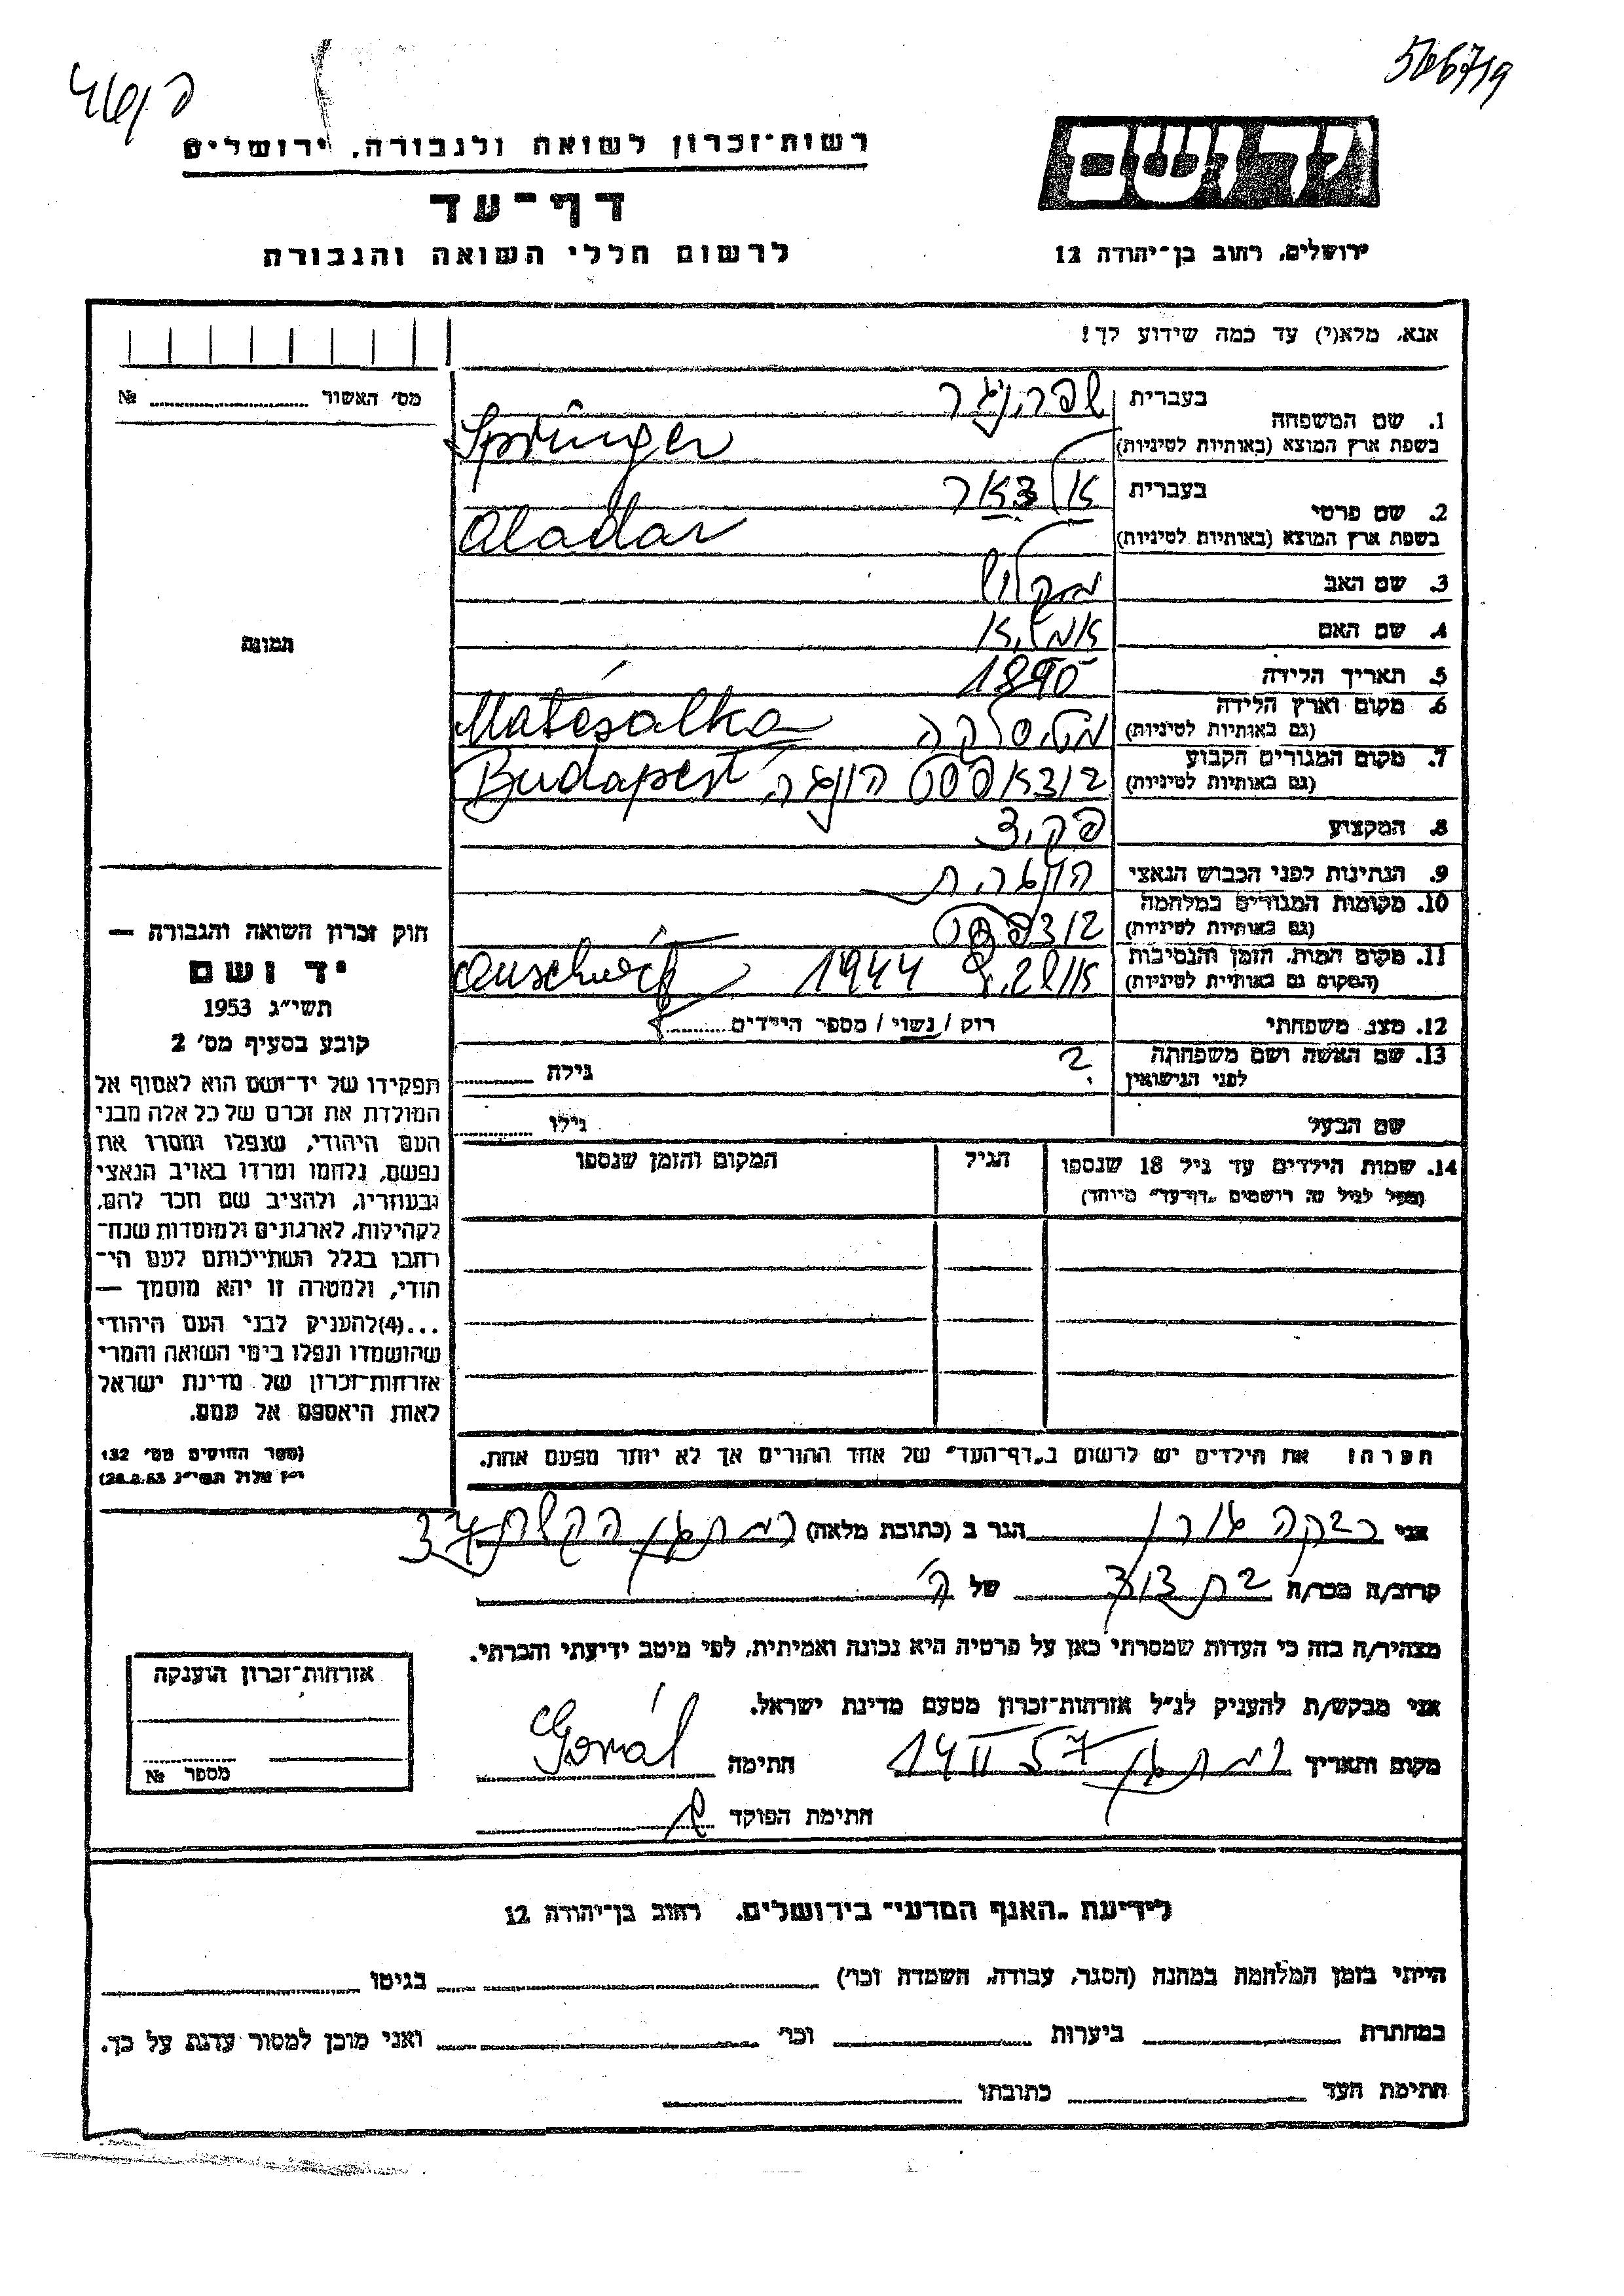 רשות־זכרון לשואה ולגבורה, ירושלים
דף־עד
לרשום חללי השואה והגבורה
ירושלים, רחוב בן־יהודה 12
אנא, מלא(י) עד כמה שידוע לך!
מס׳ האשור № 
1. שם המשפחה בעברית שפרינגר
בשפת ארץ המוצא (באותיות לטיניות) Springer
2. שם פרטי בעברית אלאדאר
בשפת ארץ המוצא (באותיות לטיניות) Aladár
3. שם האב
4. שם האם
5. תאריך הלידה 1890
6. מקום וארץ הלידה (גם באותיות לטיניות) Mátésalka
7. מקום המגורים הקבוע (גם באותיות לטיניות) Budapest
8. המקצוע פקיד
9. הנתינות לפני הכבוש הנאצי הונגרית
10. מקומות המגורים במלחמה (גם באותיות לטיניות) בודפשט
11. מקום המות, הזמן והנסיבות (המקום גם באותיות לטיניות) 1944 Auschwitz
12. מצב משפחתי רוק / נשוי / מספר הילדים
13. שם האשה ושם משפחתה לפני הנישואין ? גילה
שם הבעל גילו
14. שמות הילדים עד גיל 18 שנספו הגיל המקום והזמן שנספו
(מעל לגיל זה רושמים „דף־עד״ מיוחד)
תמונה
חוק זכרון השואה והגבורה —
יד ושם
תשי״ג 1953
קובע בסעיף מס׳ 2
תפקידו של יד־ושם הוא לאסוף אל
המולדת את זכרם של כל אלה מבני
העם היהודי, שנפלו ומסרו את
נפשם, נלחמו ומרדו באויב הנאצי
ובעוזריו, ולהציב שם וזכר להם,
לקהילות, לארגונים ולמוסדות שנח־
רבו בגלל השתייכותם לעם הי־
הודי, ולמטרה זו יהא מוסמך —
...(4)להעניק לבני העם היהודי
שהושמדו ונפלו בימי השואה והמרי
אזרחות־זכרון של מדינת ישראל
לאות היאספם אל עמם.
(ספר החוקים מס׳ 132
י״ז אלול תשי״ג 28.8.53)
הערה: את הילדים יש לרשום ב„דף־העד״ של אחד ההורים אך לא יותר מפעם אחת.
אני רבקה הגר ב (כתובת מלאה) רמת גן
קרוב/ה מכר/ה בת דוד של
מצהיר/ה בזה כי העדות שמסרתי כאן על פרטיה היא נכונה ואמיתית, לפי מיטב ידיעתי והכרתי.
אני מבקש/ת להעניק לנ״ל אזרחות־זכרון מטעם מדינת ישראל.
מקום ותאריך רמת גן 14 II 57 חתימה Gorál
חתימת הפוקד
אזרחות־זכרון הוענקה
מספר №
לידיעת „האגף המדעי״ בירושלים, רחוב בן־יהודה 12
הייתי בזמן המלחמה במחנה (הסגר, עבודה, השמדה וכו׳) בגיטו
במחתרת ביערות וכו׳ ואני מוכן למסור עדות על כך.
חתימת העד כתובתו